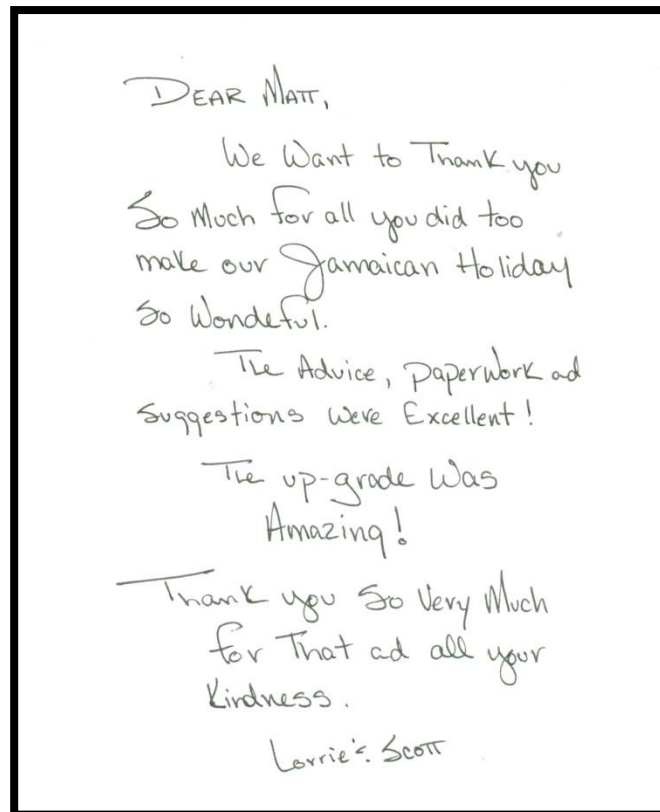 DEAR MATT,
We Want to Thank you
So Much for all you did too
make our Jamaican Holiday
So Wondeful.
The Advice, paperwork ad
Suggestions Were Excellent!
The up-grade Was
Amazing!
Thank you So Very Much
for That ad all your
Kindness.
Lorrie & Scott